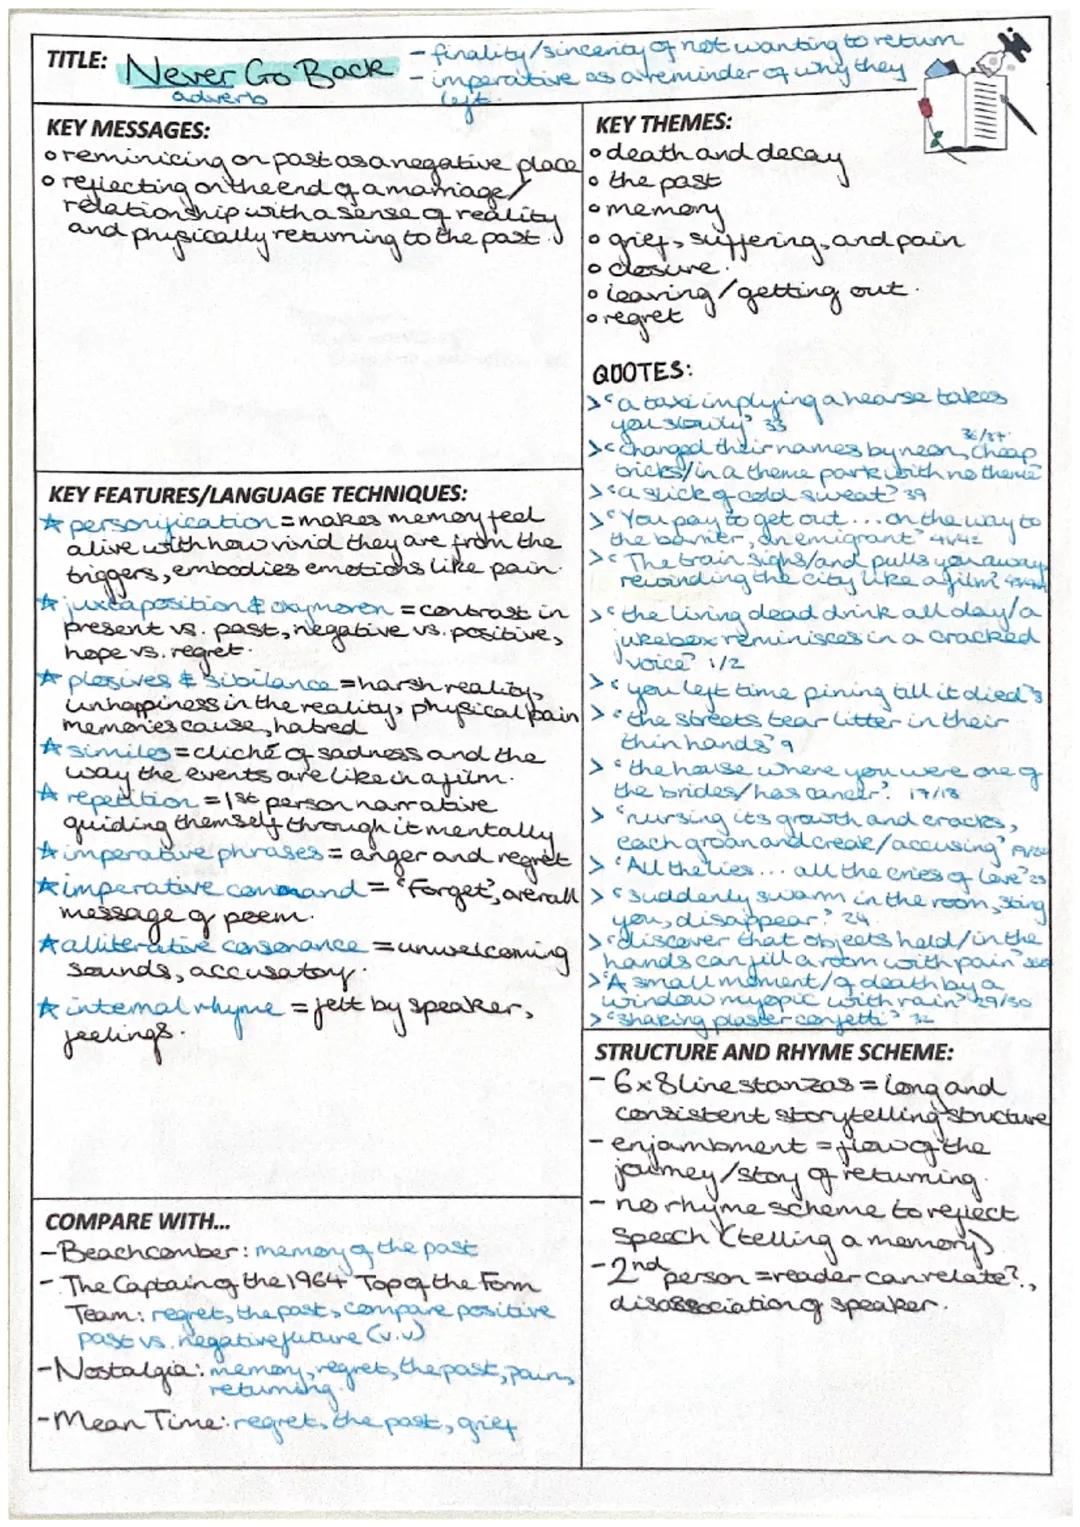 TITLE: Never Go Back
adverb
- finality/sincerity of not wanting to return
- imperative as a reminder of why they
left.
KEY MESSAGES:
o reminicing on past as a negative place
o reflecting on the end of a marriage/
relationship with a sense of reality
and physically returning to the past.
KEY THEMES:
o death and decay
o the past
o memory
o grief, suffering, and pain
o closure.
o leaving/getting out.
o regret
QUOTES:
> 'a taxi implying a hearse takes
you slowly' 33
> 'changed their names by neon, cheap 36/37
tricks/in a theme park with no theme'
> 'a slick of cold sweat' 39
> 'You pay to get out... on the way to
the barrier, an emigrant' 41/42
> 'The train sighs/and pulls you away
rewinding the city like a film'
> 'the living dead drink all day/a
jukebox reminisces in a cracked
voice' 1/2
> 'you left time pining till it died' 5
> 'the streets tear litter in their
thin hands' 9
> 'the house where you were one of
the brides/has cancer'. 17/18
> 'nursing its growth and cracks,
each groan and creak/accusing'
> 'All the lies... all the cries of love' 23
> 'suddenly swarm in the room, sting
you, disappear.' 24
> 'discover that objects held/in the
hands can fill a room with pain'
> 'A small moment/of death by a
window myopic with rain' 29/30
> 'shaking plaster confetti' 32
KEY FEATURES/LANGUAGE TECHNIQUES:
★ personification = makes memory feel
alive with how vivid they are from the
triggers, embodies emotions like pain.
★ juxtaposition & oxymoron = contrast in
present vs. past, negative vs. positive,
hope vs. regret.
★ plosives & sibilance = harsh reality,
unhappiness in the reality, physical pain
memories cause, hatred
★ similes = cliché of sadness and the
way the events are like in a film.
★ repetition = 1st person narrative
guiding themself through it mentally
★ imperative phrases = anger and regret
★ imperative command = 'Forget', overall
message of poem.
★ alliterative consonance = unwelcoming
sounds, accusatory.
★ internal rhyme = felt by speaker,
feelings.
STRUCTURE AND RHYME SCHEME:
- 6x8 line stanzas = long and
consistent storytelling structure
- enjambment = flow of the
journey/story of returning.
- no rhyme scheme to reflect
speech (telling a memory)
- 2nd person = reader can relate?,
disassociation of speaker.
COMPARE WITH...
- Beachcomber: memory of the past
- The Captain of the 1964 Top of the Form
Team: regret, the past, compare positive
past vs. negative future (v.v)
- Nostalgia: memory, regret, the past, pain,
returning.
- Mean Time: regret, the past, grief